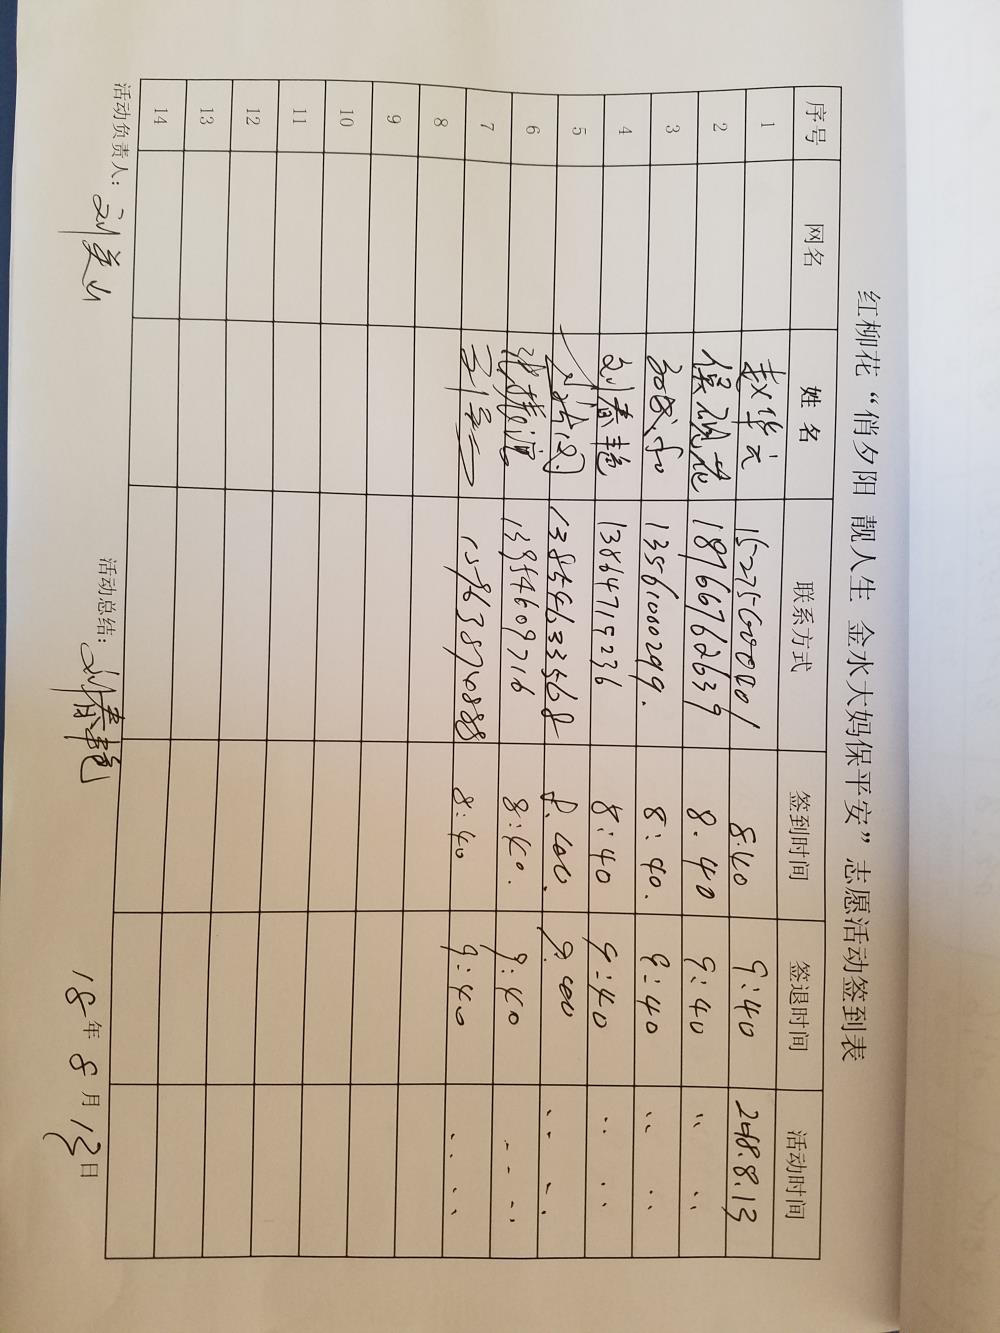 红柳花“俏夕阳 靓人生 金水大妈保平安”志愿活动签到表
序号 网名 姓名 联系方式 签到时间 签退时间 活动时间
1 赵华云 15275600001 8:40 9:40 2018.8.13
2 18766762639 8.40 9:40 〃 〃
3 13561000299. 8:40. 9:40 〃 〃
4 刘春艳 13864719236 8:40 9:40 〃 〃
5 13854633568 〃 〃
6 13954609716 8:40. 9:40 〃 〃
7 8:40 9:40 〃 〃
8
9
10
11
12
13
14
活动负责人: 刘美山 活动总结: 刘春艳 18年8月13日